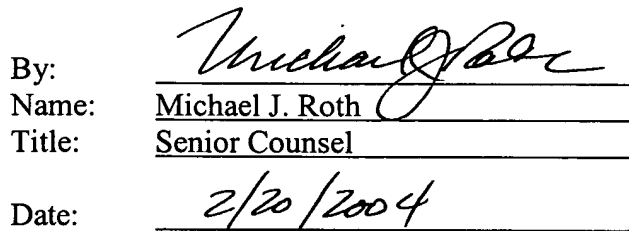 By: Michael J Roth
Name: Michael J. Roth
Title: Senior Counsel
Date: 2/20/2004